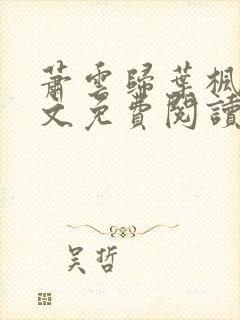 蕭雲歸葉楓
文免費閱讀
吴哲